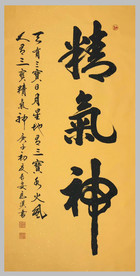 精氣神
天有三寶日月星地有三寶水火風
人有三寶精氣神庚子初夏書